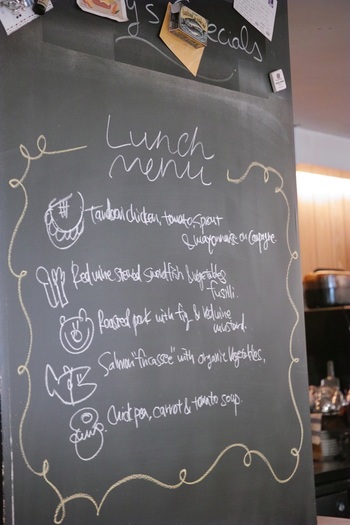 y's specials
Lunch
menu
Tandoori chicken, tomato, sprout
& mayonnaise on Campagne.
Red wine stewed swordfish & vegetables
fusilli.
Roasted pork with fig & red wine
mustard.
Salmon "fricassee" with organic vegetables,
Chick pea, carrot & tomato soup.